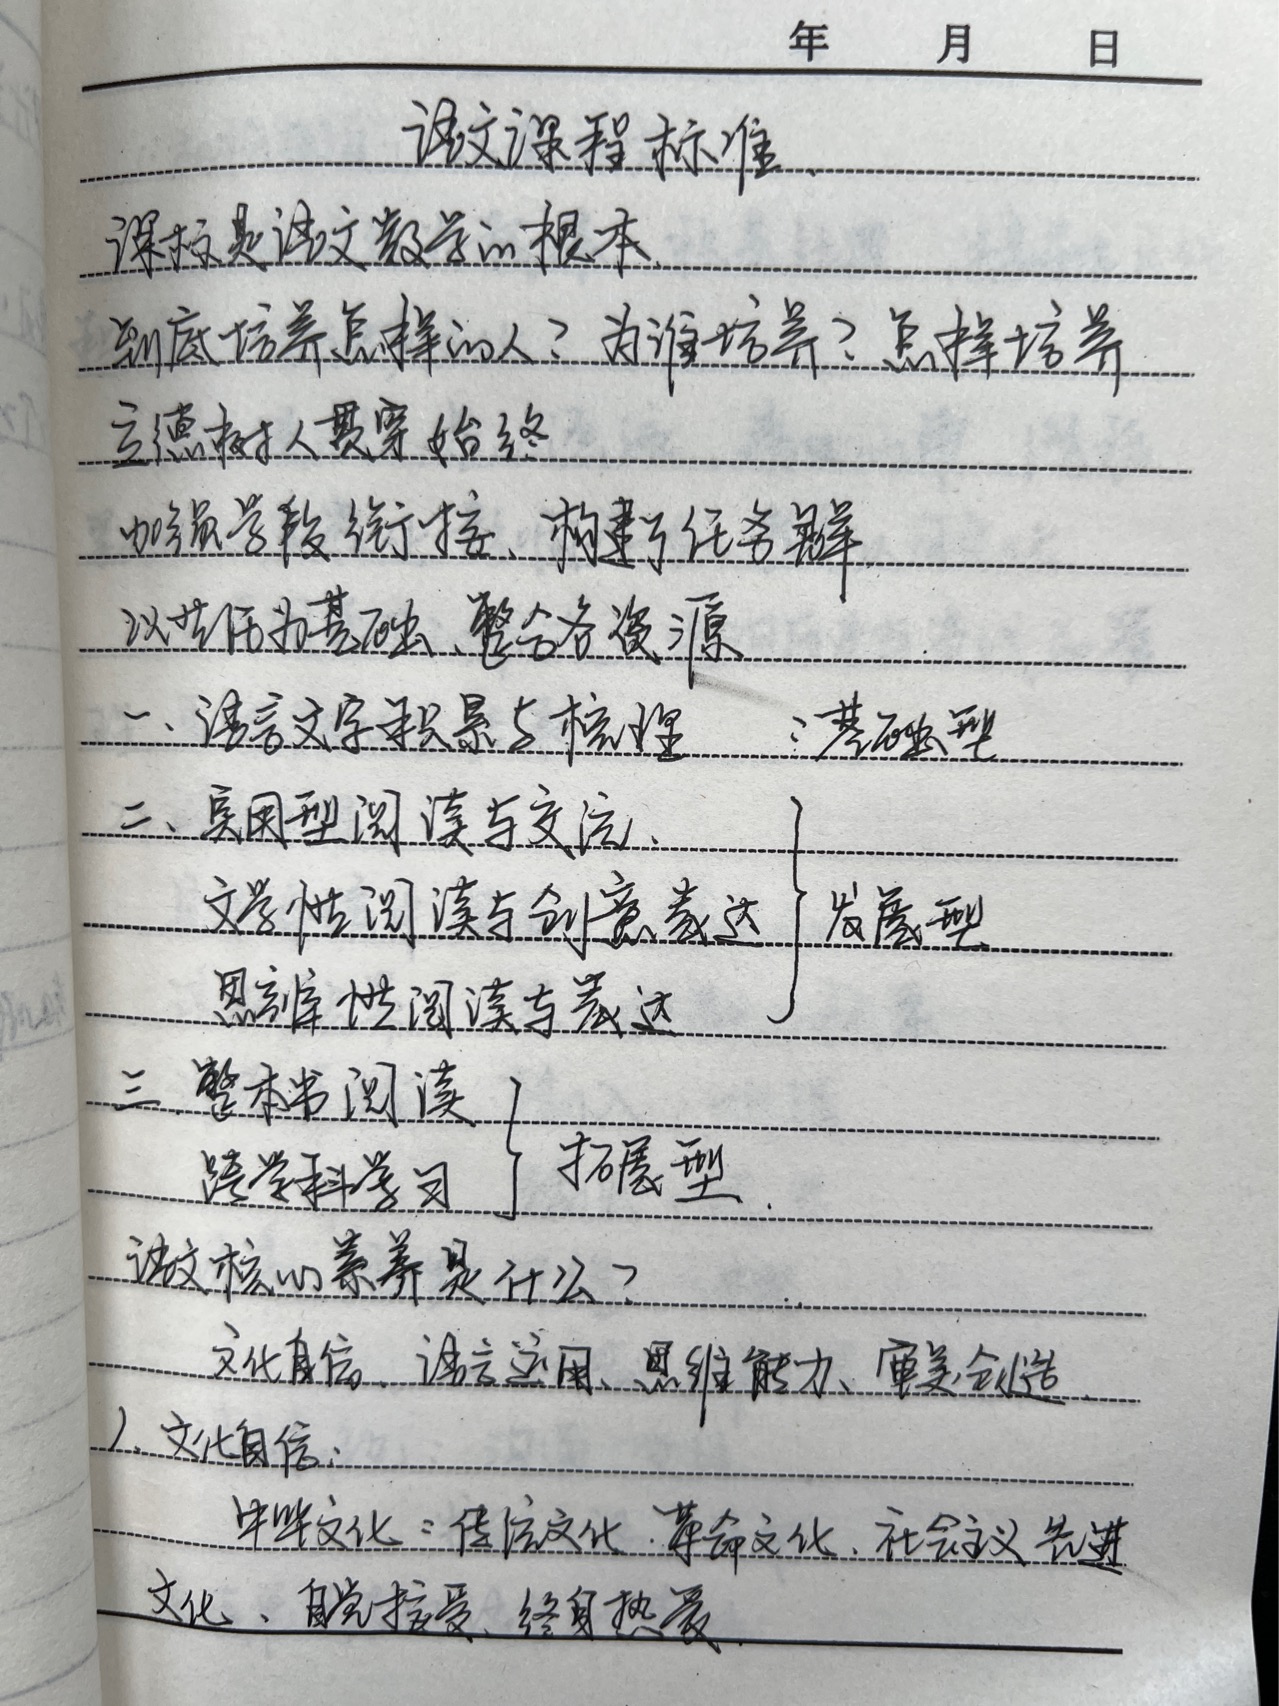 年 月 日
语文课程标准
课标是语文教学的根本
到底培养怎样的人？为谁培养？怎样培养
立德树人贯穿始终
加强学段衔接、构建了任务群
以其任为基础、整合各资源
一、语言文字积累与梳理 ：基础型
二、实用型阅读与交流、
文学性阅读与创意表达 发展型
思辨性阅读与表达
三、整本书阅读
跨学科学习 拓展型.
语文核心素养是什么？
文化自信、语言运用、思维能力、审美创造.
1、文化自信：
中华文化：传统文化、革命文化、社会主义先进
文化、自觉接受、终身热爱.